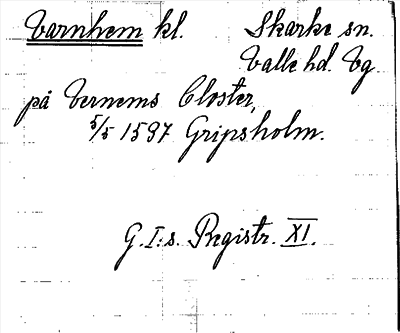 Varnhem kl. Skarke sn.
Valle hd. Vg
på Vernems Closter,
5/5 1537 Gripsholm.
G. I:s. Registr. XI.